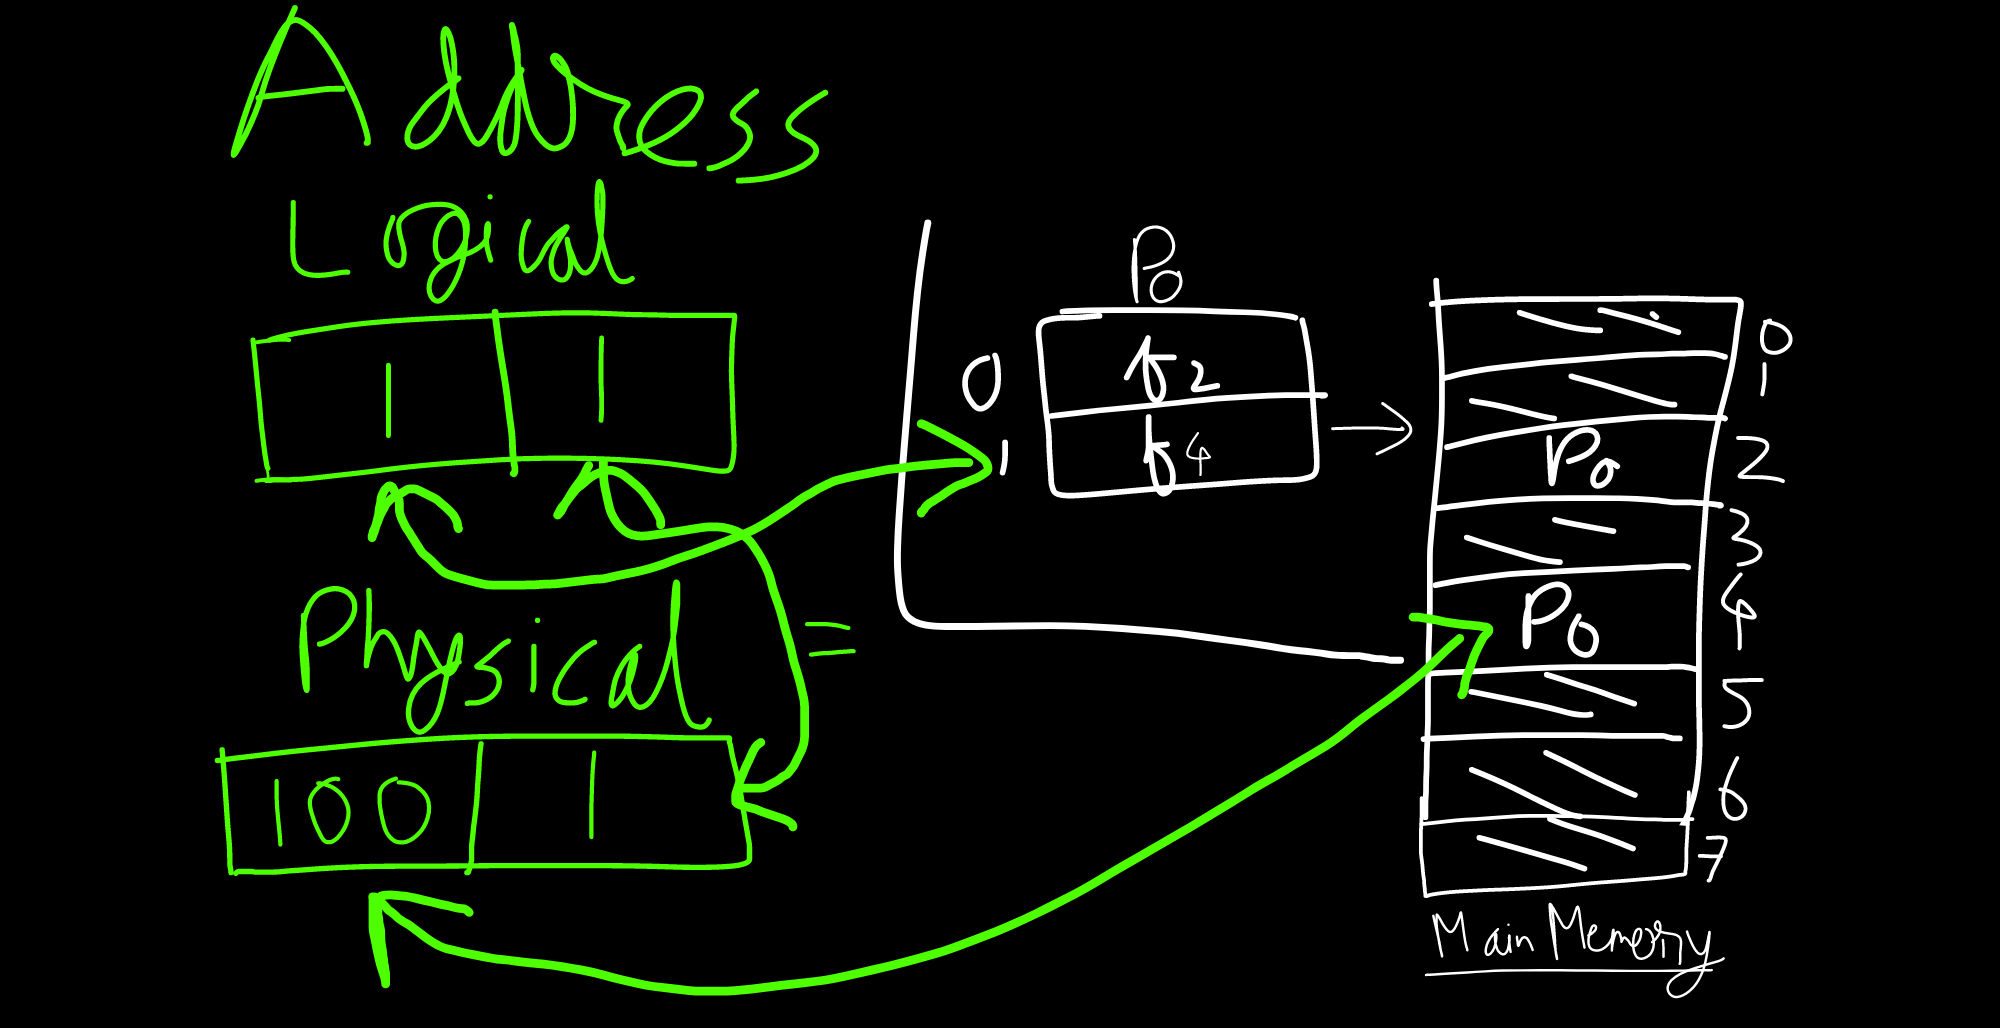 Address
Logical
1 1
Physical
=
100 1
P0
0 f2
1 f4
0
1
P0 2
3
P0 4
5
6
7
Main Memory